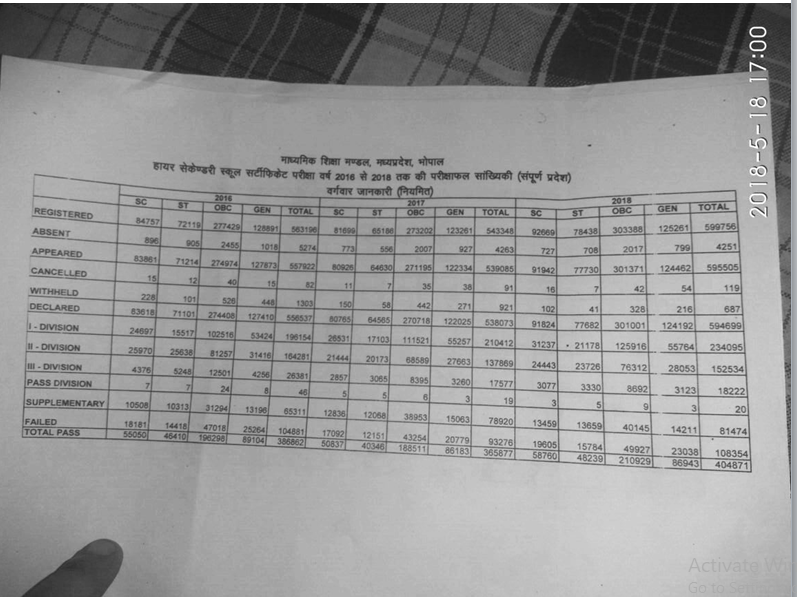 2018-5-18 17:00
माध्यमिक शिक्षा मण्डल, मध्यप्रदेश, भोपाल
हायर सेकेण्डरी स्कूल सर्टीफिकेट परीक्षा वर्ष 2016 से 2018 तक की परीक्षाफल सांख्यिकी (संपूर्ण प्रदेश)
वर्गवार जानकारी (नियमित)
2016 2017 2018
SC ST OBC GEN TOTAL SC ST OBC GEN TOTAL SC ST OBC GEN TOTAL
REGISTERED 84757 72119 277429 128891 563196 81699 65186 273202 123261 543348 92669 78438 303388 125261 599756
ABSENT 896 905 2455 1018 5274 773 556 2007 927 4263 727 708 2017 799 4251
APPEARED 83861 71214 274974 127873 557922 80926 64630 271195 122334 539085 91942 77730 301371 124462 595505
CANCELLED 15 12 40 15 82 11 7 35 38 91 16 7 42 54 119
WITHHELD 228 101 526 448 1303 150 58 442 271 921 102 41 328 216 687
DECLARED 83618 71101 274408 127410 556537 80765 64565 270718 122025 538073 91824 77682 301001 124192 594699
I - DIVISION 24697 15517 102516 53424 196154 26531 17103 111521 55257 210412 31237 21178 125916 55764 234095
II - DIVISION 25970 25638 81257 31416 164281 21444 20173 68589 27663 137869 24443 23726 76312 28053 152534
III - DIVISION 4376 5248 12501 4256 26381 2857 3065 8395 3260 17577 3077 3330 8692 3123 18222
PASS DIVISION 7 7 24 8 46 5 5 6 3 19 3 5 9 3 20
SUPPLEMENTARY 10508 10313 31294 13196 65311 12836 12068 38953 15063 78920 13459 13659 40145 14211 81474
FAILED 18181 14418 47018 25264 104881 17092 12151 43254 20779 93276 19605 15784 49927 23038 108354
TOTAL PASS 55050 46410 196298 89104 386862 50837 40346 188511 86183 365877 58760 48239 210929 86943 404871
Activate
Go to